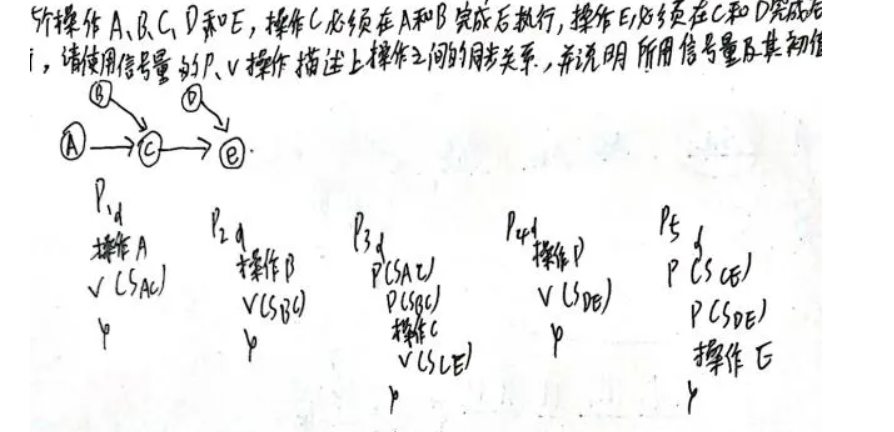 5个操作A、B、C、D和E，操作C必须在A和B完成后执行，操作E必须在C和D完成后
，请使用信号量的P、V操作描述上操作之间的同步关系，并说明所用信号量及其初值
B D
A C E
P1{
操作A
V(SAC)
}
P2{
操作B
V(SBC)
}
P3{
P(SAC)
P(SBC)
操作C
V(SCE)
}
P4{
操作D
V(SDE)
}
P5{
P(SCE)
P(SDE)
操作E
}